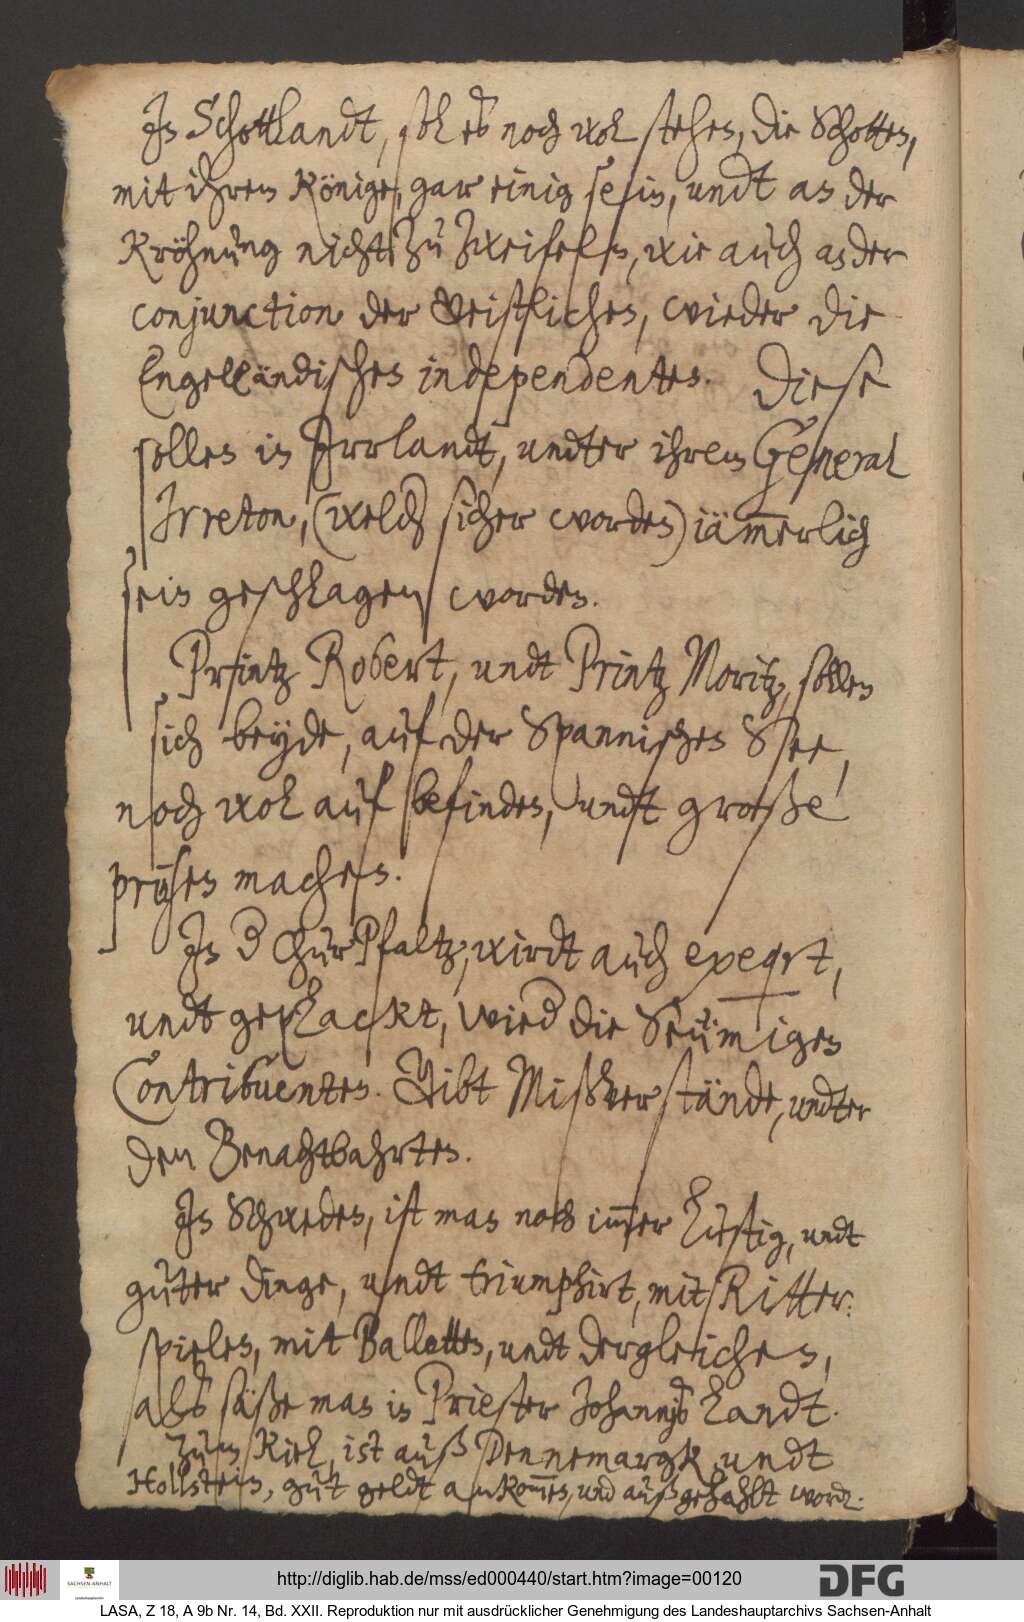 In Schottlandt, sol es noch wol stehen, die Schotten,
mit ihrem Könige, gar einig sein, undt an der
Kröhnung nicht zu zweifeln, wie auch an der
conjunction der Geistlichen, wieder die
Engelländischen independenten. Diese
sollen in Irrlandt, undter ihrem General
Irreton, (welch sicher worden) iämerlich
sein geschlagen worden.
Printz Robert, undt Printz Moritz, sollen
sich beyde, auf der Spannischen See,
noch wol auf befinden, undt große
prysen machen.
In d ChurPfaltz, wirdt auch exeqrt,
undt geplackt, wied die Seümigen
Contribuenten. Gibt Mißverstände, undter
den Benachtbahrten.
In Schweden, ist man noch imer lustig, undt
guter dinge, undt triumphirt, mit Ritter:
spielen, mit Balletten, undt dergleichen,
als säße man in Priester Johannis Landt.
Zum Kiel, ist auß Dennemargk undt
Hollstein, gut geldt ankomen, und außgezahlt word.
http://diglib.hab.de/mss/ed000440/start.htm?image=00120
SACHSEN-ANHALT
Landeshauptarchiv
DFG
LASA, Z 18, A 9b Nr. 14, Bd. XXII. Reproduktion nur mit ausdrücklicher Genehmigung des Landeshauptarchivs Sachsen-Anhalt